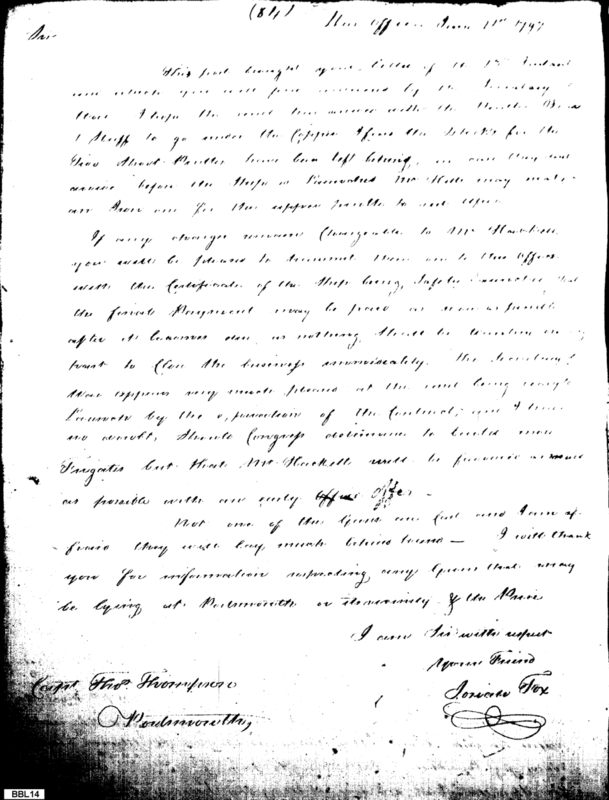 (84)
War Office June 11th 1797
Sir
This post brought your letter of the 1st Instant
on which you will find answered by the Secretary
War. I hope the vessel has arrived with the
Stuff to go under the Copper. If any the Stocks for the
have been left behind, in case they not
arrive before the Ship is Launched Mr. Hill may make
an Iron one for the upper
If any charges remain Chargeable to Mr. Hackett
you will be pleased to transmit them on to this Office
with the Certificate of the Ship being safely Launched that
the final Payment may be paid as soon as possible
after it becomes due, as nothing should be wanting on my
part to Close the business immediately. The Secretary
War appears very much pleased at the vessel being ready to
Launch by the expiration of the Contract, and I have
no doubt, should Congress determine to build more
Frigates but that Mr. Hackett will be favored as soon
as possible with an early offer
Not one of the Guns are Cast and I am af-
fraid they will lay much behind hand — I will thank
you for information respecting any Guns that may
be lying at Portsmouth or its vicinity & the Price
I am Sir with respect
Your Friend
Josiah Fox
Capt. Thos. Thompson
Portsmouth,
BBL14